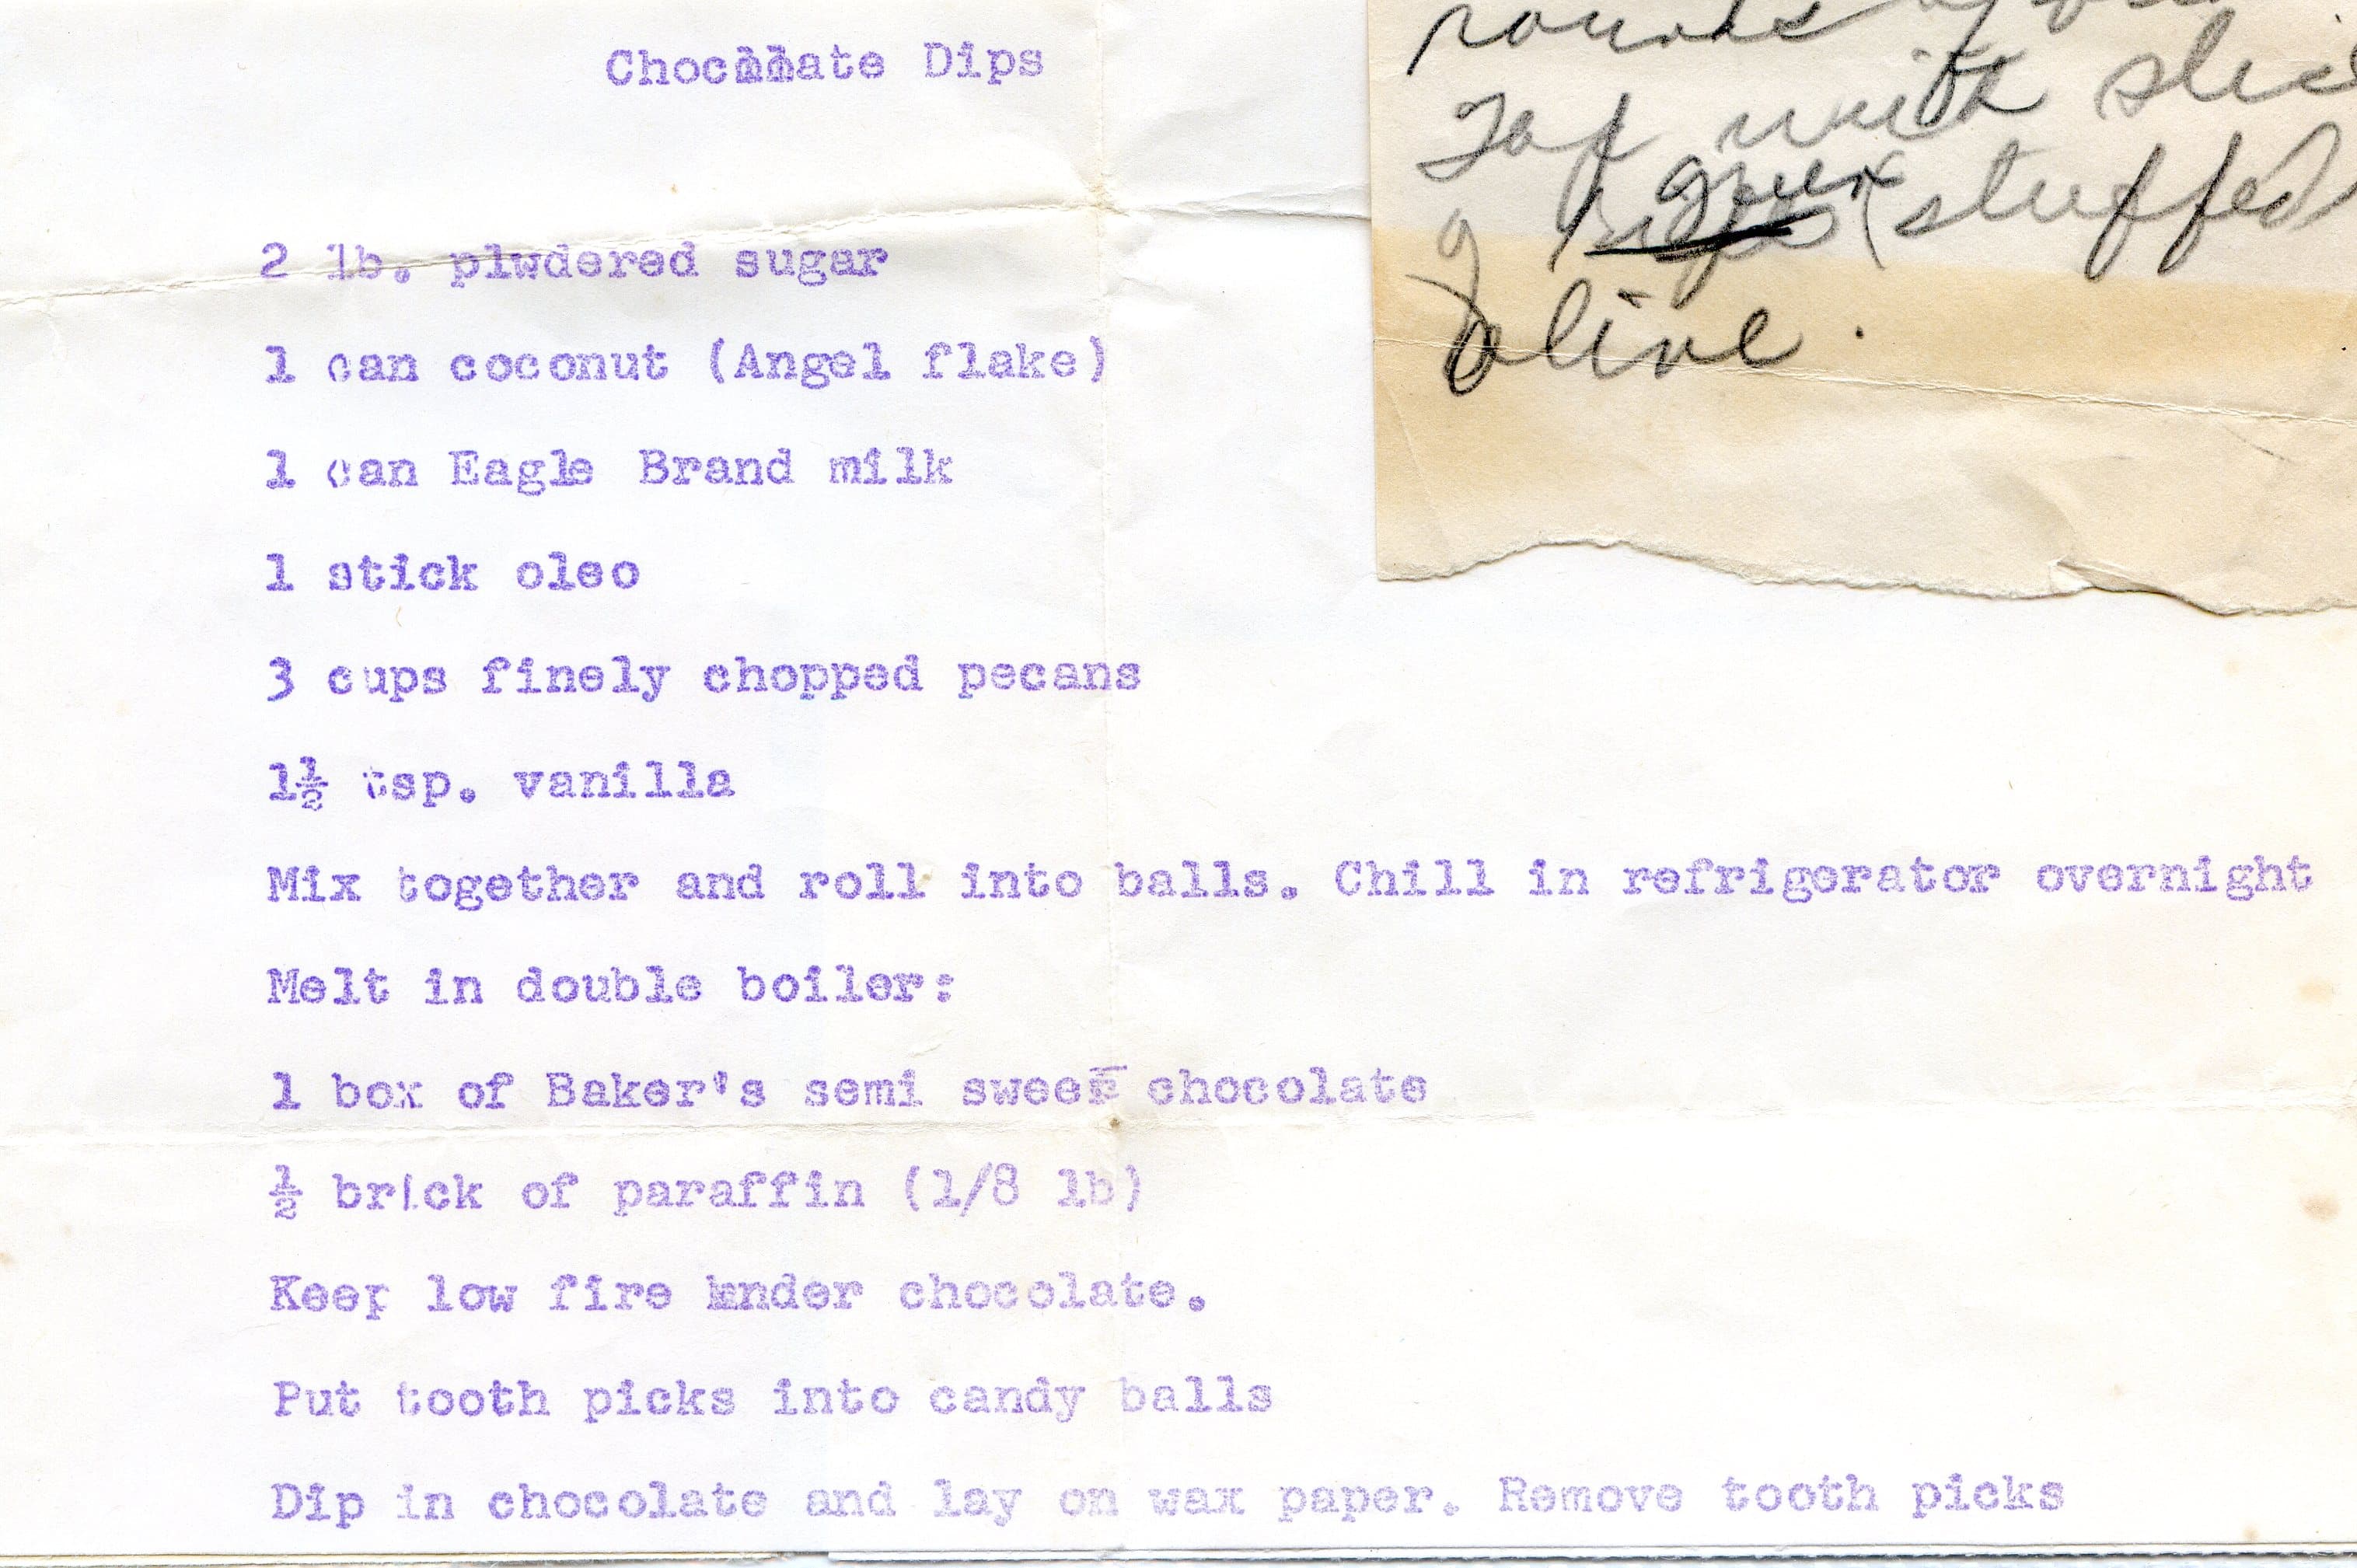 Chocolate Dips
2 lb. plwdered sugar
1 can coconut (Angel flake)
1 can Eagle Brand milk
1 stick oleo
3 cups finely chopped pecans
1½ tsp. vanilla
Mix together and roll into balls. Chill in refrigerator overnight
Melt in double boiler:
1 box of Baker's semi sweet chocolate
½ brick of paraffin (1/8 lb)
Keep low fire under chocolate.
Put tooth picks into candy balls
Dip in chocolate and lay on wax paper. Remove tooth picks
rounds of
Top with
green stuffed
olive.